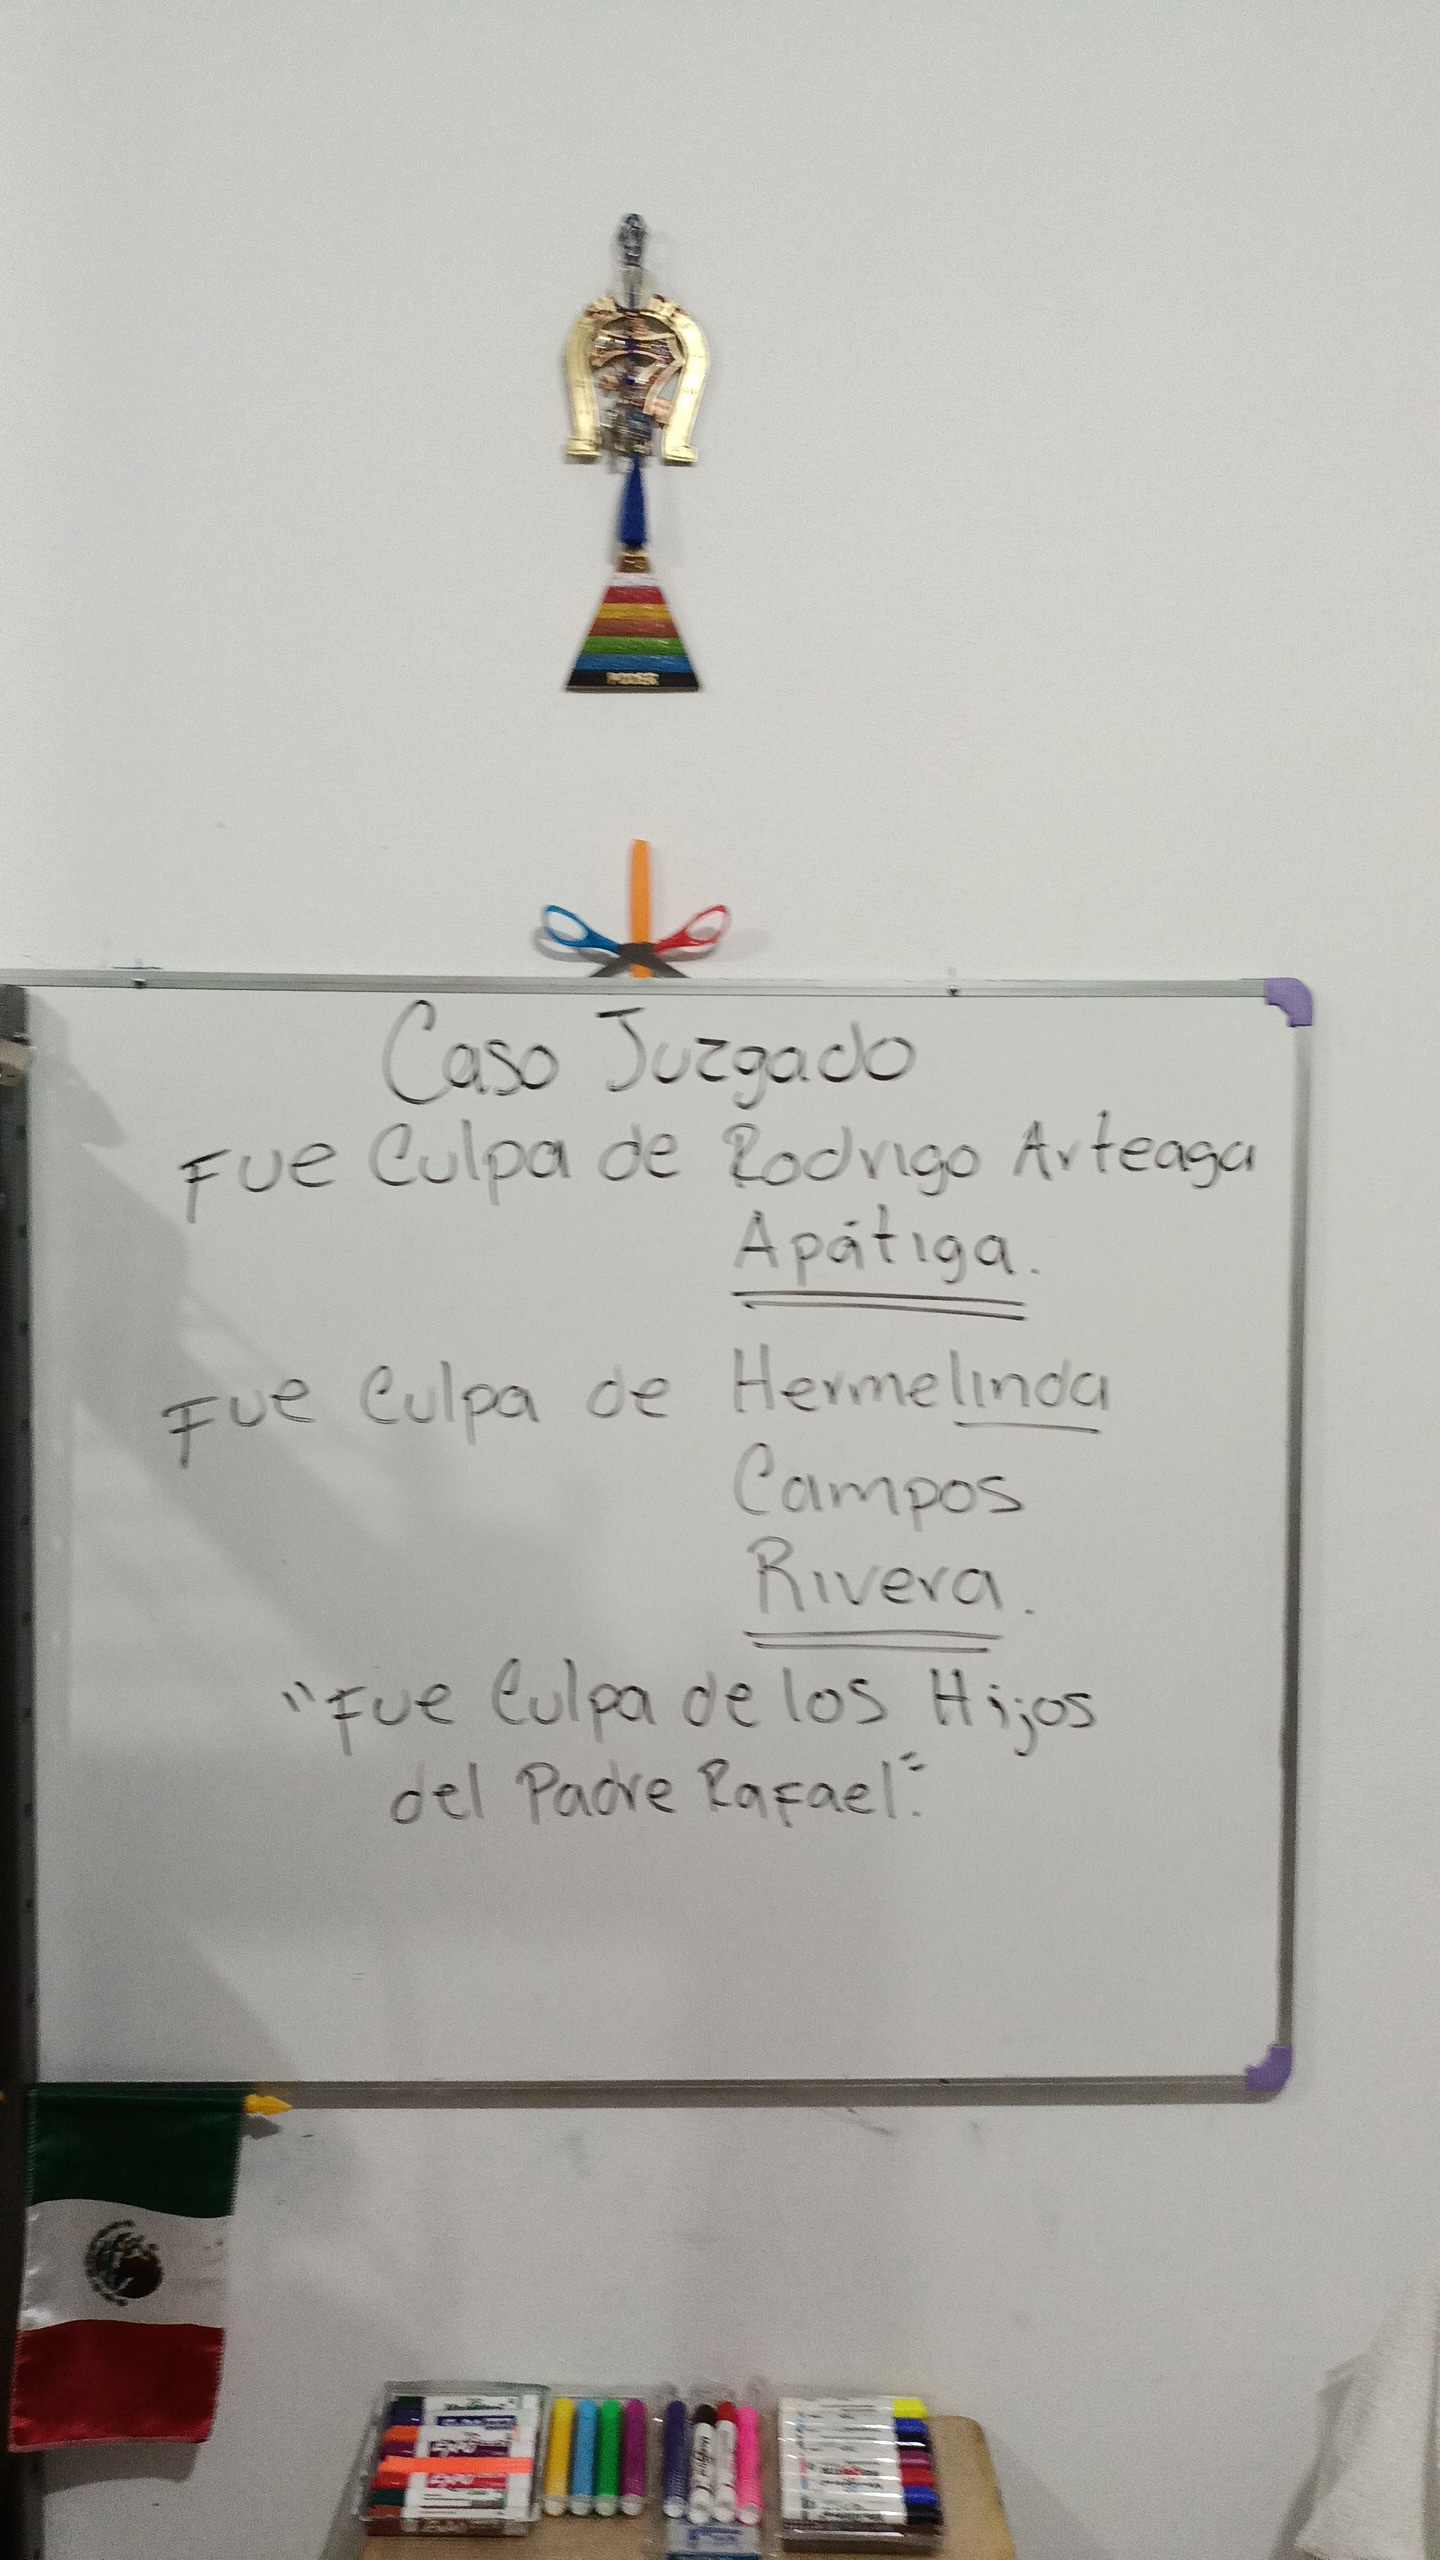 Caso Juzgado
Fue Culpa de Rodrigo Arteaga
Apátiga.
Fue Culpa de Hermelinda
Campos
Rivera.
"Fue Culpa de los Hijos
del Padre Rafael".
EXPO
EXPO
EXPO